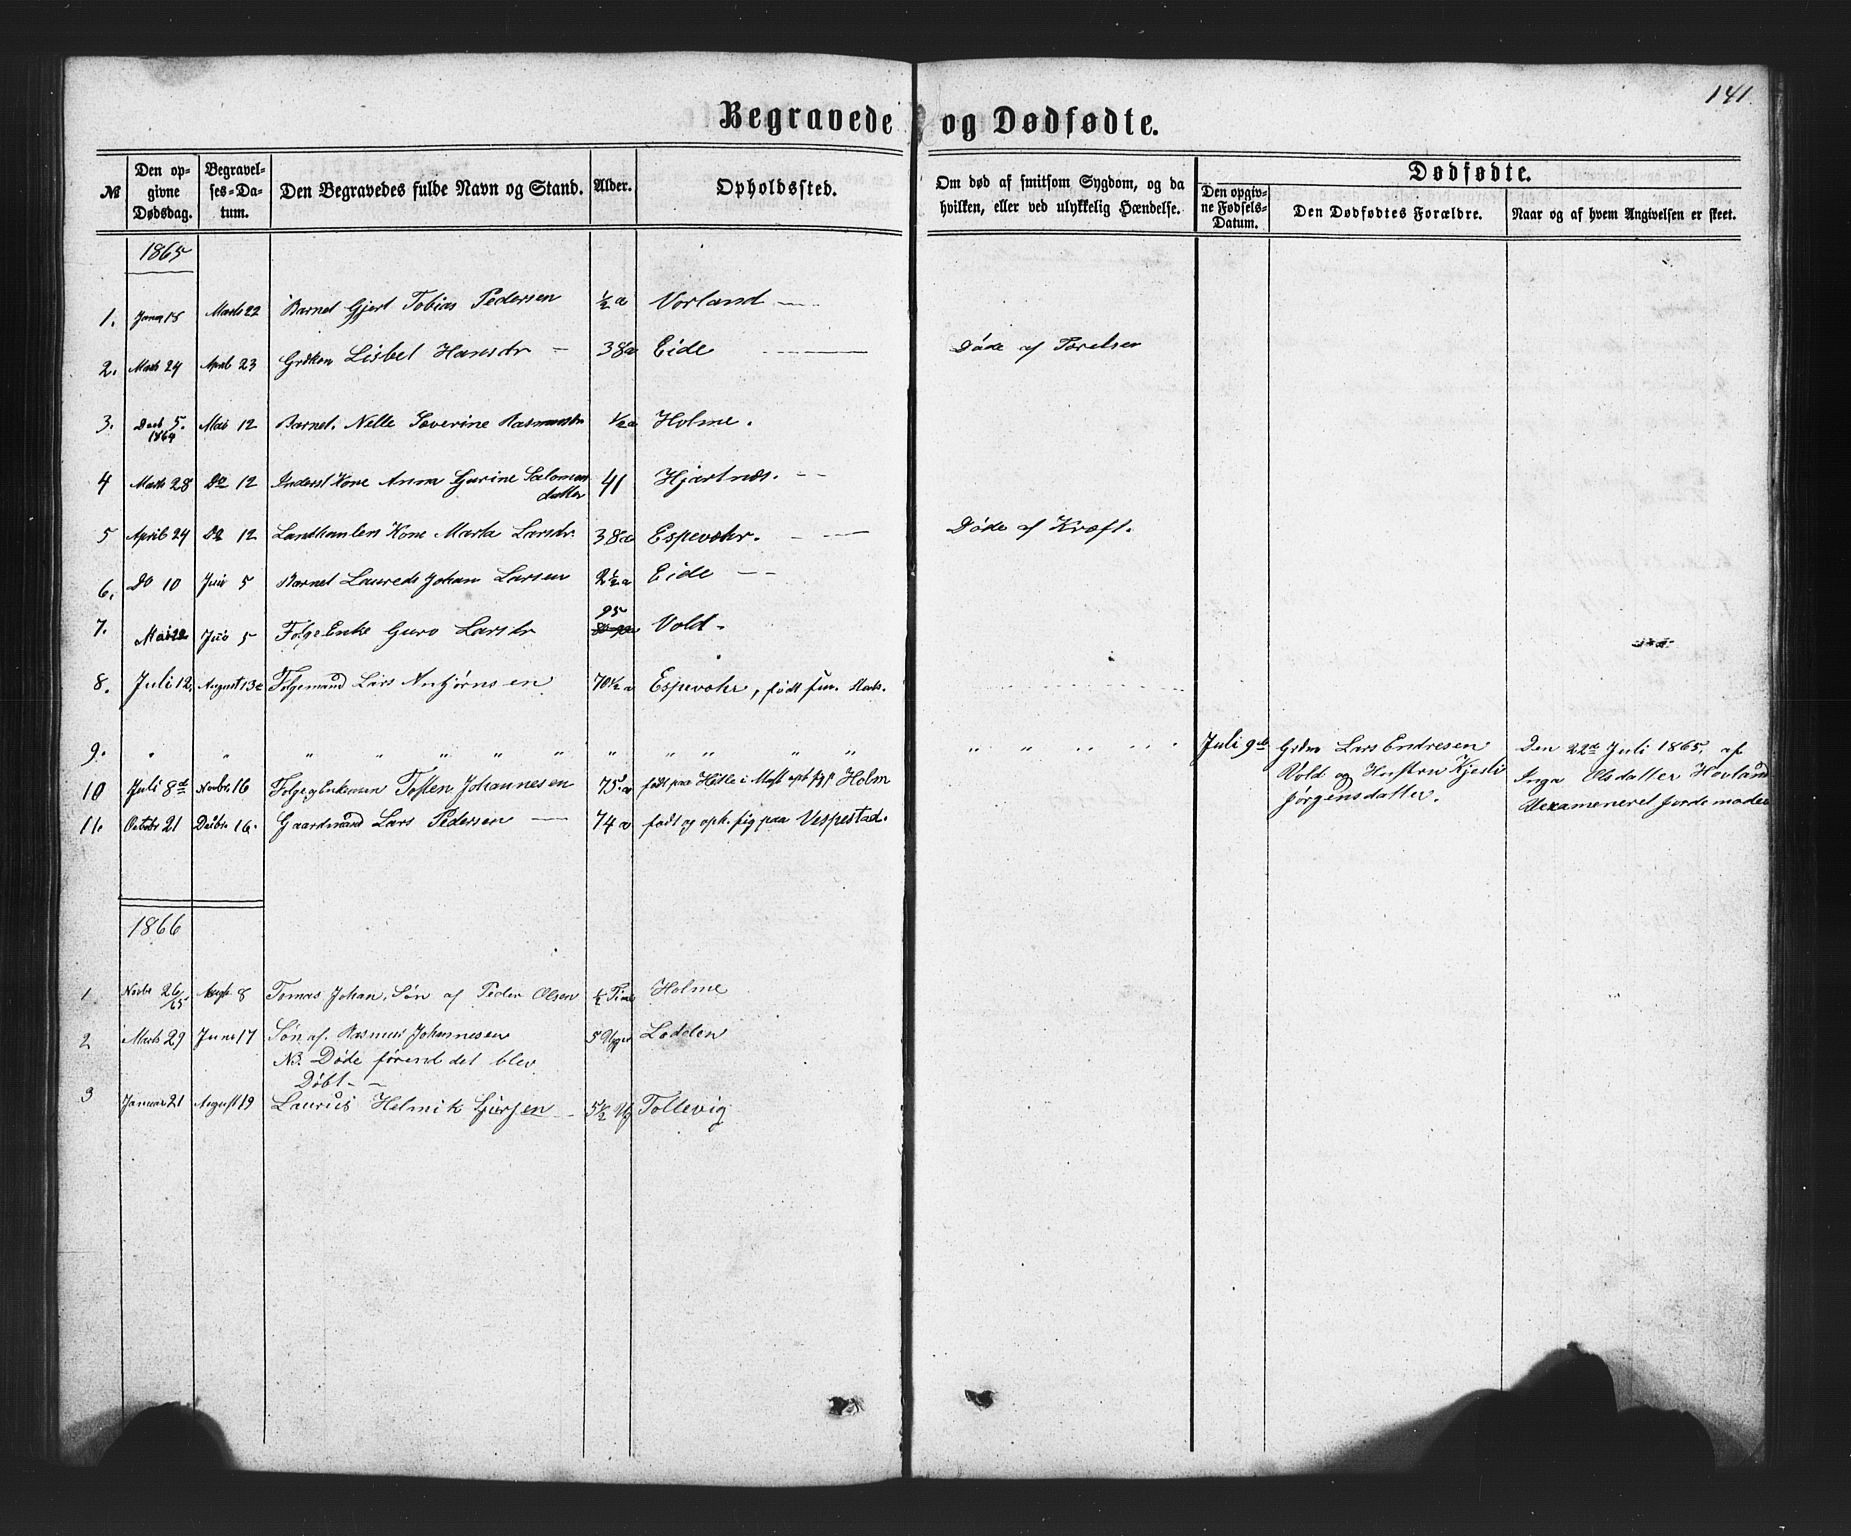 141.
Begravede og Dødfødte.
№
Den opgivne Dødsdag.
Begravelses-Datum.
Den Begravedes fulde Navn og Stand.
Alder.
Opholdssted.
Om død af smitsom Sygdom, og da hvilken, eller ved ulykkelig Hændelse.
Dødfødte.
Den opgivne Fødsels-Datum.
Den Dødfødtes Forældre.
Naar og af hvem Angivelsen er skeet.
1865
1. Januar 18 Marts 22 Barnet Gjert Tobias Pedersen ½ a Vorland
2. Marts 24 April 23 Grdkon Lisbet Hansdr 38a Eide Døde af Færelser
3. Decb 5. 1864 Mai 12 Barnet. Nelle Severine Rasmusdr ½a Holme.
4 Marts 28 Do 12 Inderst Kone Anna Gurine Salomons
datter 41 Hjertnæs.
5 April 24 Do 12 Kone Marta Larsdr. 38a Espevohr. Døde af Kræft.
6. Do 10 Juni 5 Barnet Laureds Johan Larsen 2½a Eide
7. Mai 22 Juni 5 Følge Enke Guro Larsdr 95 Vold.
8. Juli 12. August 13 Følgemand Lars Anbjørnsen 70½ a Espevohr, født
9. " " " " " " " " " " " " " " " " " Juli 9de Grdm Lars Endresen
Vold og Hustru Kjesti
Jørgensdatter.
Den 22de Juli 1865. af
Inga Olsdatter Hovland
Uexamineret Jordemoder
10 Juli 8de Novbr 16 Følge og Enkeman Tosten Johannesen 75. a født paa Hille i Holm
11. Octobr 21 Decbr 16. Gaardmand Lars Pedersen 74 a født og oph. sig paa Vespestad.
1866
1. Novbr 26/65 Augst 8 Tomas Johan, Søn af Peder Olsen ½ Time Holme
2 Marts 29 Juni 17 Søn af. Rasmus Johannesen 5 Uger Lodden
NB. Døde førend det blev
Døbt
3 Januar 21 August 19 Laurus Helmik 5½ Ug Tollevig